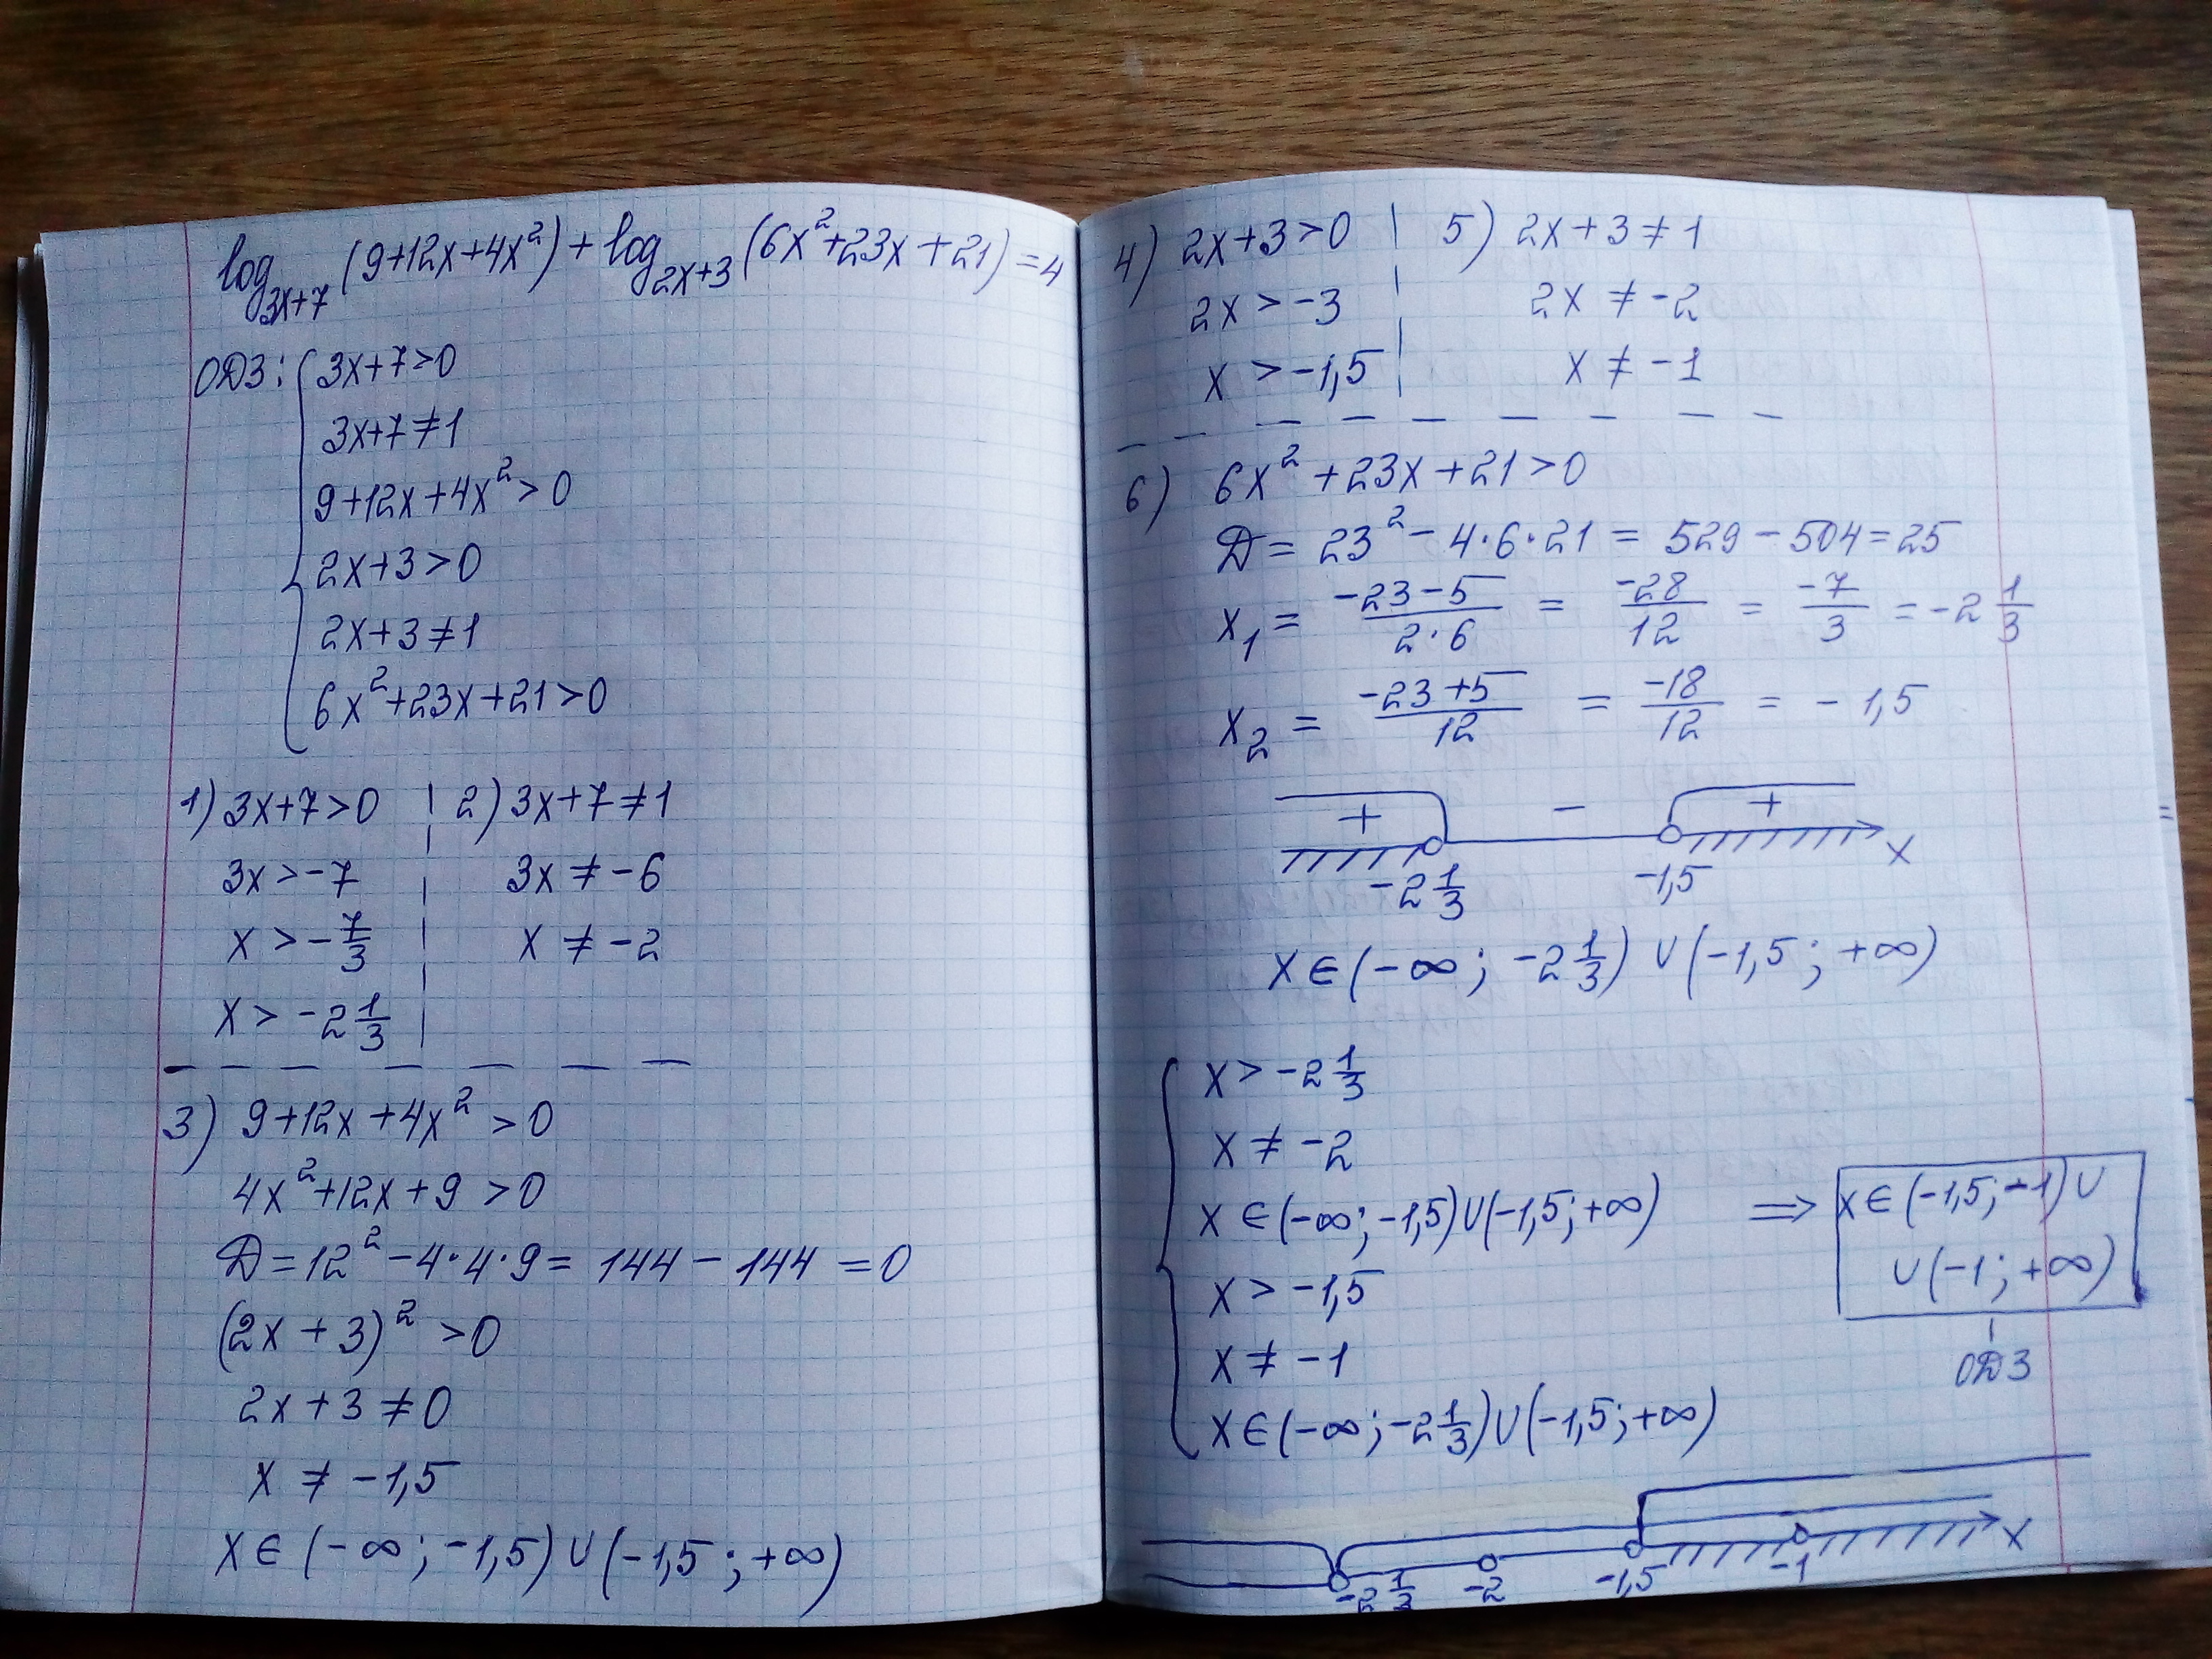 log₃ₓ₊₇ (9+12x+4x²) + log₂ₓ₊₃ (6x²+23x+21) = 4
ОДЗ:
3x+7>0
3x+7≠1
9+12x+4x²>0
2x+3>0
2x+3≠1
6x²+23x+21>0
1) 3x+7>0
3x>-7
x>-7/3
x>-2 1/3
2) 3x+7≠1
3x≠-6
x≠-2
3) 9+12x+4x²>0
4x²+12x+9>0
D=12²-4·4·9=144-144=0
(2x+3)²>0
2x+3≠0
x≠-1,5
x∈(-∞;-1,5)∪(-1,5;+∞)
4) 2x+3>0
2x>-3
x>-1,5
5) 2x+3≠1
2x≠-2
x≠-1
6) 6x²+23x+21>0
D=23²-4·6·21=529-504=25
x₁=(-23-5)/(2·6)=-28/12=-7/3=-2 1/3
x₂=(-23+5)/12=-18/12=-1,5
+ - +
-2 1/3 -1,5 x
x∈(-∞;-2 1/3)∪(-1,5;+∞)
x>-2 1/3
x≠-2
x∈(-∞;-1,5)∪(-1,5;+∞)
x>-1,5
x≠-1
x∈(-∞;-2 1/3)∪(-1,5;+∞)
⇒ x∈(-1,5;-1)∪
∪(-1;+∞)
ОДЗ
-2 1/3 -2 -1,5 -1 x